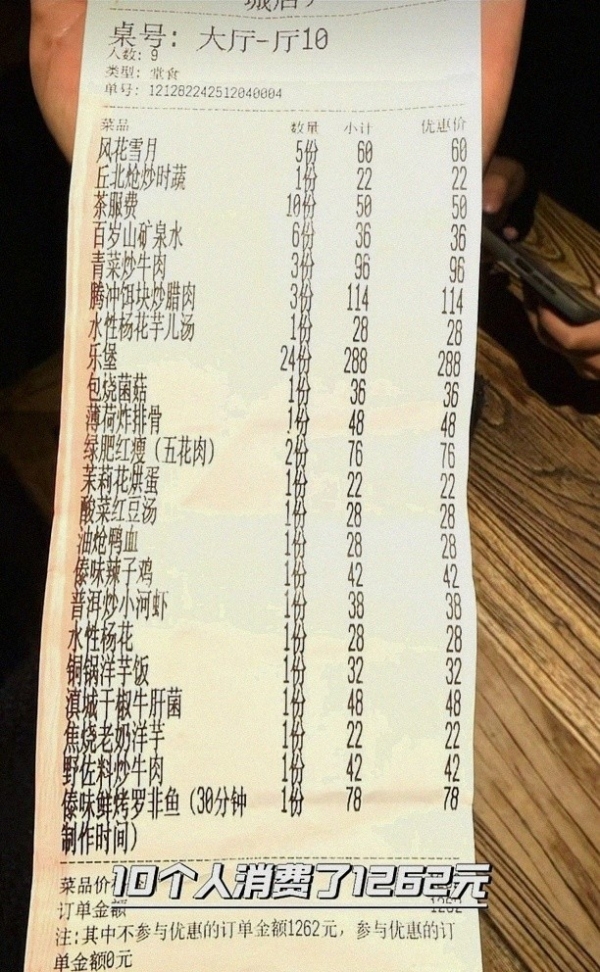 桌号: 大厅-厅10
人数: 9
类型: 堂食
单号: 121282242512040004
菜品 数量 小计 优惠价
风花雪月 5份 60 60
丘北炝炒时蔬 1份 22 22
茶服费 10份 50 50
百岁山矿泉水 6份 36 36
青菜炒牛肉 3份 96 96
腾冲饵块炒腊肉 3份 114 114
水性杨花芋儿汤 1份 28 28
乐堡 24份 288 288
包烧菌菇 1份 36 36
薄荷炸排骨 1份 48 48
绿肥红瘦（五花肉） 2份 76 76
茉莉花烘蛋 1份 22 22
酸菜红豆汤 1份 28 28
油炝鸭血 1份 28 28
傣味辣子鸡 1份 42 42
普洱炒小河虾 1份 38 38
水性杨花 1份 28 28
铜锅洋芋饭 1份 32 32
滇城干椒牛肝菌 1份 48 48
焦烧老奶洋芋 1份 22 22
野佐料炒牛肉 1份 42 42
傣味鲜烤罗非鱼（30分钟 1份 78 78
制作时间）
菜品价
10个人消费了1262元
订单金额 1262
注:其中不参与优惠的订单金额1262元，参与优惠的订
单金额0元